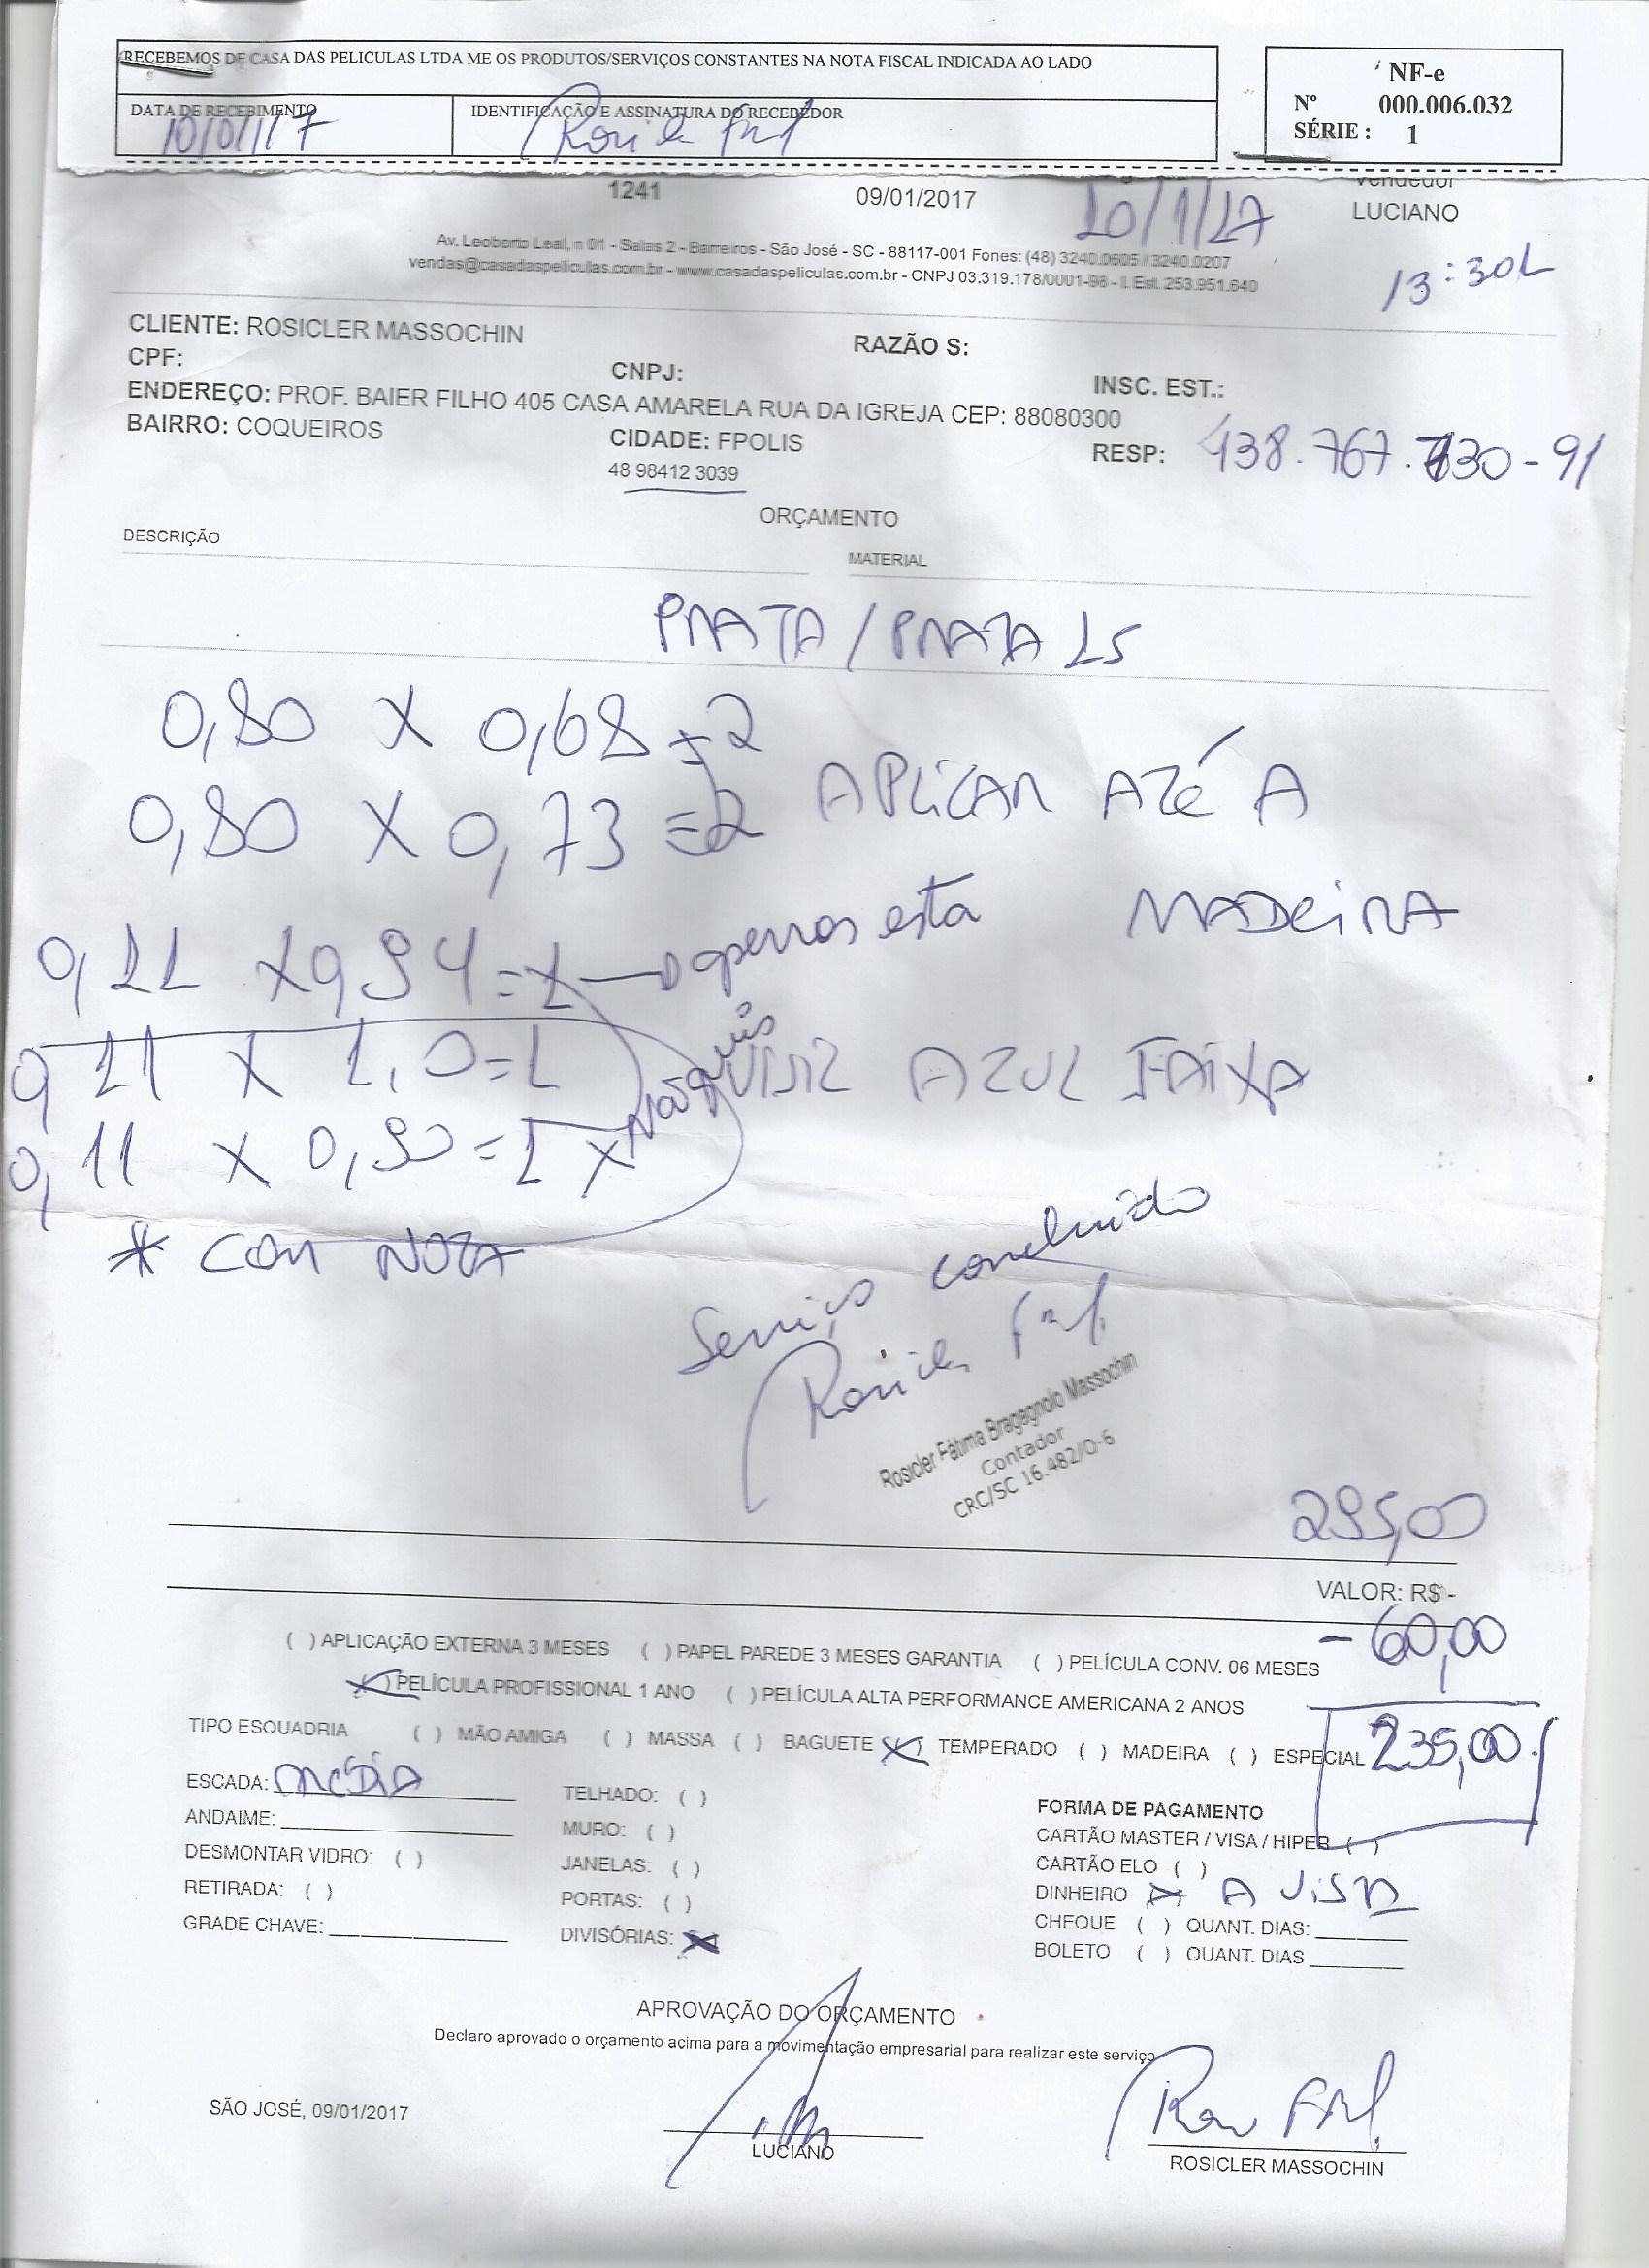 RECEBEMOS DE CASA DAS PELICULAS LTDA ME OS PRODUTOS/SERVIÇOS CONSTANTES NA NOTA FISCAL INDICADA AO LADO
DATA DE RECEBIMENTO
10/01/17
IDENTIFICAÇÃO E ASSINATURA DO RECEBEDOR
NF-e
Nº 000.006.032
SÉRIE : 1
1241 09/01/2017 10/1/17 Vendedor
LUCIANO
13:30h
Av. Leoberto Leal, n 01 - Salas 2 - Barreiros - São José - SC - 88117-001 Fones: (48) 3240.0605 / 3240.0207
vendas@casadaspeliculas.com.br - www.casadaspeliculas.com.br - CNPJ 03.319.178/0001-98 - I. Est. 253.951.640
CLIENTE: ROSICLER MASSOCHIN RAZÃO S:
CPF: CNPJ: INSC. EST.:
ENDEREÇO: PROF. BAIER FILHO 405 CASA AMARELA RUA DA IGREJA CEP: 88080300
BAIRRO: COQUEIROS CIDADE: FPOLIS RESP: 438.767.730-91
48 98412 3039
ORÇAMENTO
DESCRIÇÃO MATERIAL
PRATA / PRATA LS
0,80 X 0,68 = 2
0,80 X 0,73 = 2 APLICAR ATÉ A
MADEIRA
0,11 X 0,94 = 1 apenas esta
0,11 X 1,0 = 1 não quis VISIZ AZUL FAIXA
0,11 X 0,90 = 1 X
* COM NOTA
Serviço concluido
Rosicler Fátima Bragagnolo Massochin
Contador
CRC/SC 16.482/O-6
295,00
VALOR: R$ -
- 60,00
( ) APLICAÇÃO EXTERNA 3 MESES ( ) PAPEL PAREDE 3 MESES GARANTIA ( ) PELÍCULA CONV. 06 MESES
(X) PELÍCULA PROFISSIONAL 1 ANO ( ) PELÍCULA ALTA PERFORMANCE AMERICANA 2 ANOS
235,00
TIPO ESQUADRIA ( ) MÃO AMIGA ( ) MASSA ( ) BAGUETE (X) TEMPERADO ( ) MADEIRA ( ) ESPECIAL
ESCADA: MÉDIA TELHADO: ( )
ANDAIME: MURO: ( )
DESMONTAR VIDRO: ( ) JANELAS: ( )
RETIRADA: ( ) PORTAS: ( )
GRADE CHAVE: DIVISÓRIAS: (X)
FORMA DE PAGAMENTO
CARTÃO MASTER / VISA / HIPER ( )
CARTÃO ELO ( )
DINHEIRO (X) A VISTA
CHEQUE ( ) QUANT. DIAS:
BOLETO ( ) QUANT. DIAS
APROVAÇÃO DO ORÇAMENTO
Declaro aprovado o orçamento acima para a movimentação empresarial para realizar este serviço
SÃO JOSÉ, 09/01/2017
LUCIANO
ROSICLER MASSOCHIN